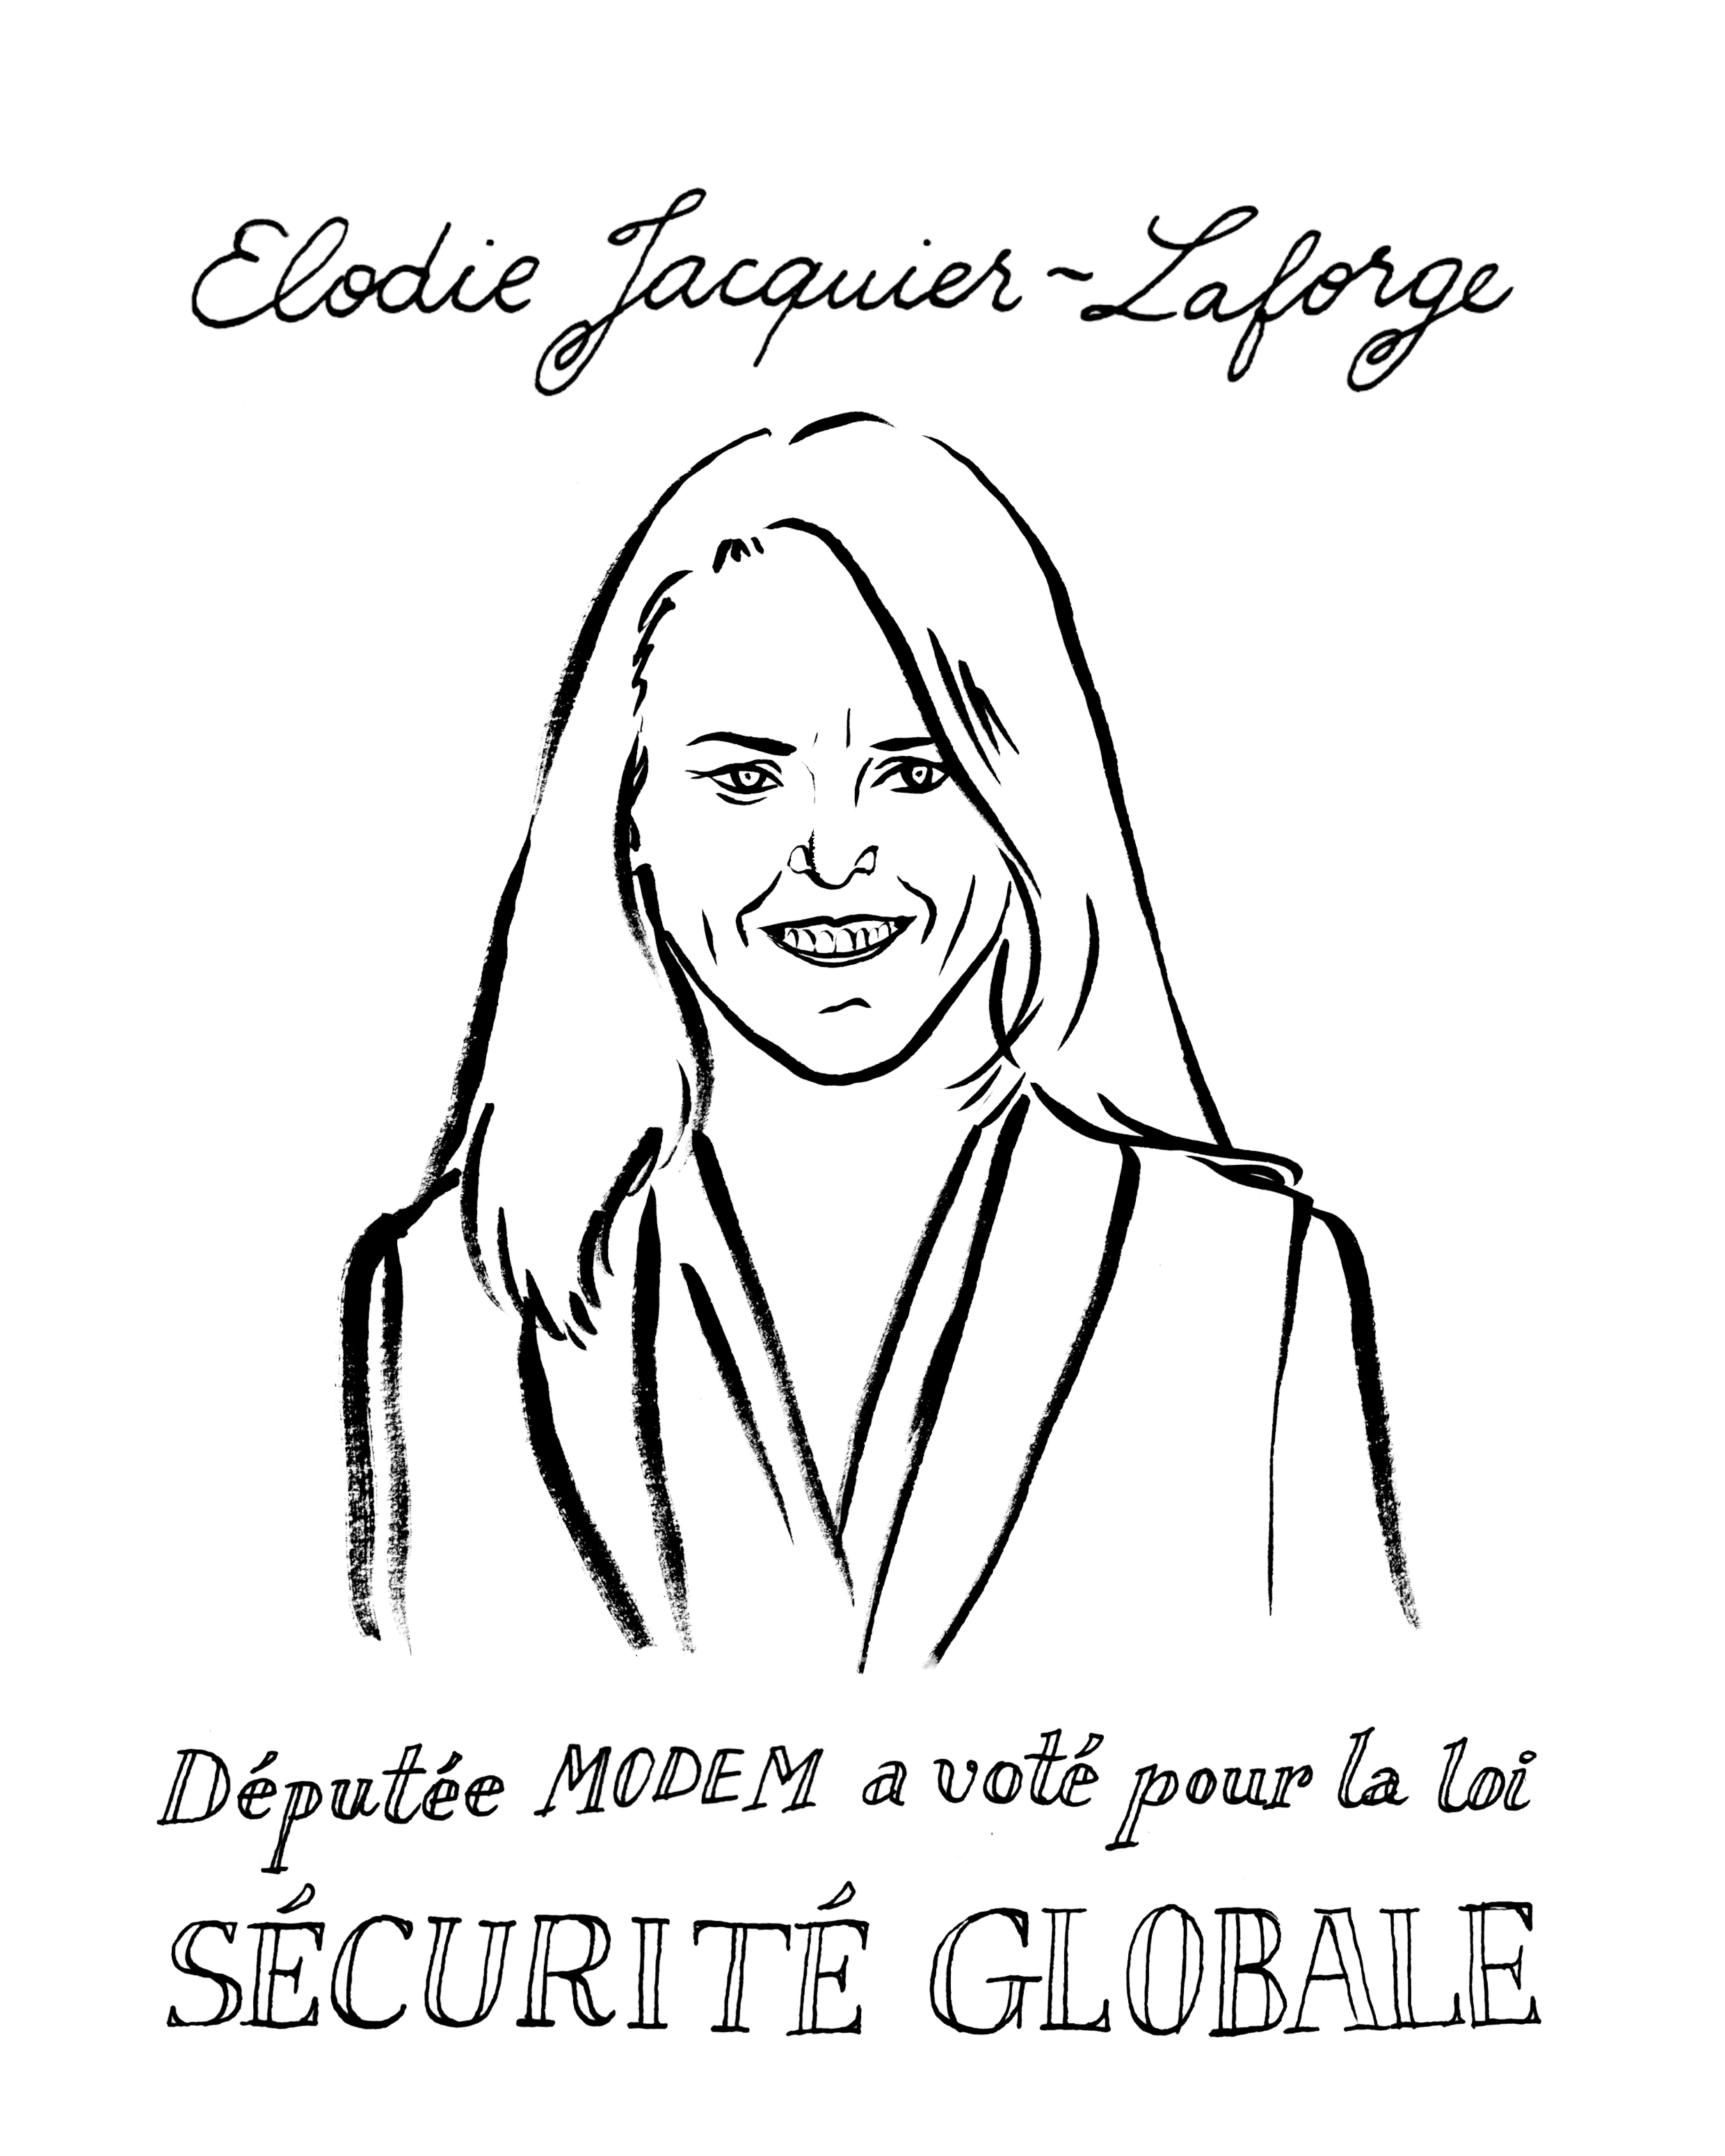 Elodie Jacquier-Laforge
Députée MODEM a voté pour la loi
SÉCURITÉ GLOBALE